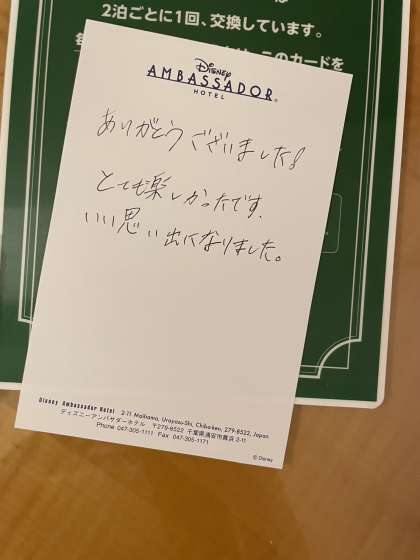 2泊ごとに1回、交換しています。
このカードを
Disney
AMBASSADOR
HOTEL
ありがとうございました!
とても楽しかったです.
いい思い出になりました。
Disney Ambassador Hotel 2-11 Maihama, Urayasu-Shi, Chiba-ken, 279-8522, Japan
ディズニーアンバサダーホテル 〒279-8522 千葉県浦安市舞浜 2-11
Phone 047-305-1111 Fax 047-305-1171
© Disney